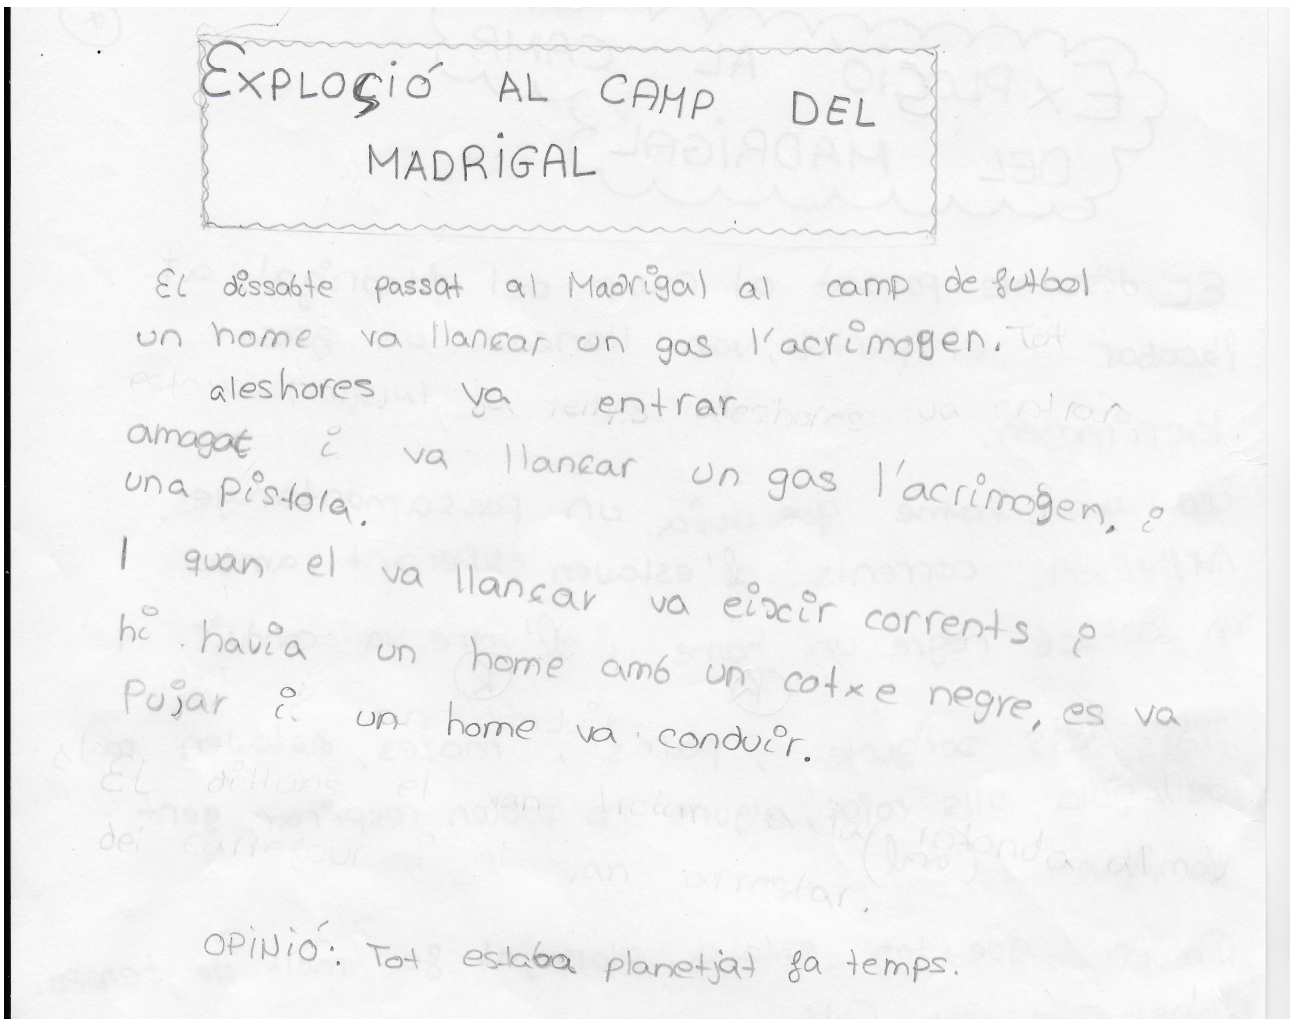 EXPLOSIÓ AL CAMP DEL
MADRIGAL
El dissabte passat al Madrigal al camp de futbol
un home va llançar un gas l'acrimogen. Tot
aleshores va entrar
amagat i va llançar un gas l'acrimogen, i
una pistola.
I quan el va llançar va eixir corrents i
hi havia un home amb un cotxe negre, es va
pujar i un home va conduir.
El dilluns el
del
al van arrestar.
OPINIÓ: Tot estaba planetjat fa temps.